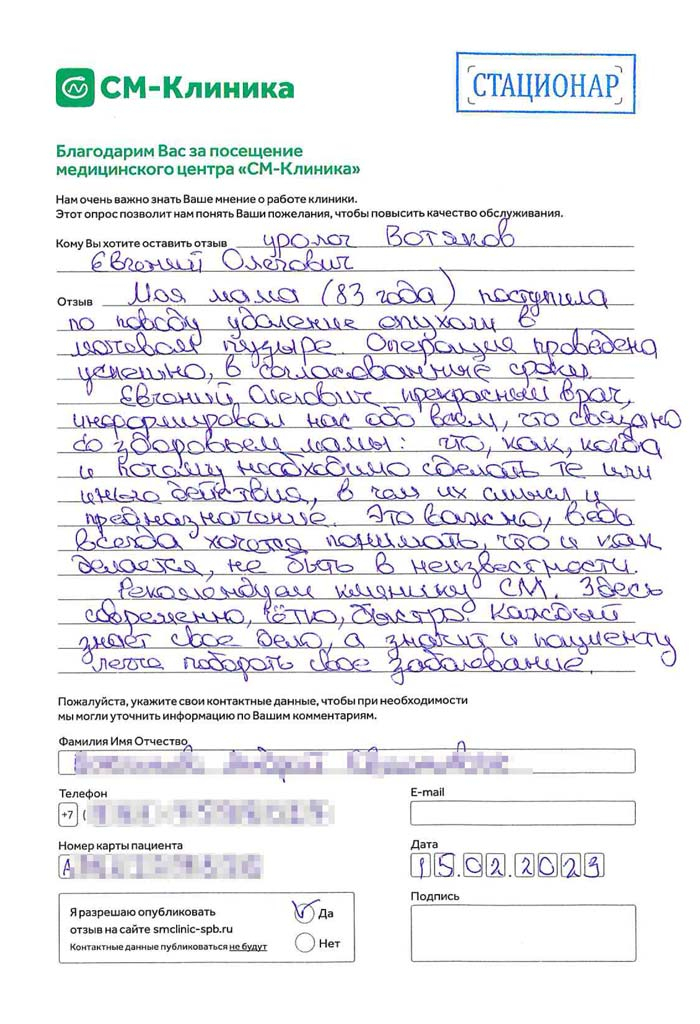 СМ-Клиника
СТАЦИОНАР
Благодарим Вас за посещение
медицинского центра «СМ-Клиника»
Нам очень важно знать Ваше мнение о работе клиники.
Этот опрос позволит нам понять Ваши пожелания, чтобы повысить качество обслуживания.
Кому Вы хотите оставить отзыв уролог Вотяков
Евгений Олегович
Отзыв Моя мама (83 года) поступила
по поводу удаление опухоли в
мочевом пузыре. Операция проведена
успешно, в согласованные сроки.
Евгений Олегович прекрасный врач,
информировал нас обо всём, что связано
со здоровьем мамы: что, как, когда
и почему необходимо сделать те или
иные действия, в чем их смысл и
предназначение. Это важно, ведь
всегда хочется понимать, что и как
делается, не быть в неизвестности.
Рекомендуем клинику СМ. Здесь
современно, чётко, быстро. Каждый
знает свое дело, а значит и пациенту
легче побороть свое заболевание.
Пожалуйста, укажите свои контактные данные, чтобы при необходимости
мы могли уточнить информацию по Вашим комментариям.
Фамилия Имя Отчество
Телефон
+7 (
E-mail
Номер карты пациента
А
Дата
15.02.2023
Я разрешаю опубликовать
отзыв на сайте smclinic-spb.ru
Контактные данные публиковаться не будут
Да
Нет
Подпись